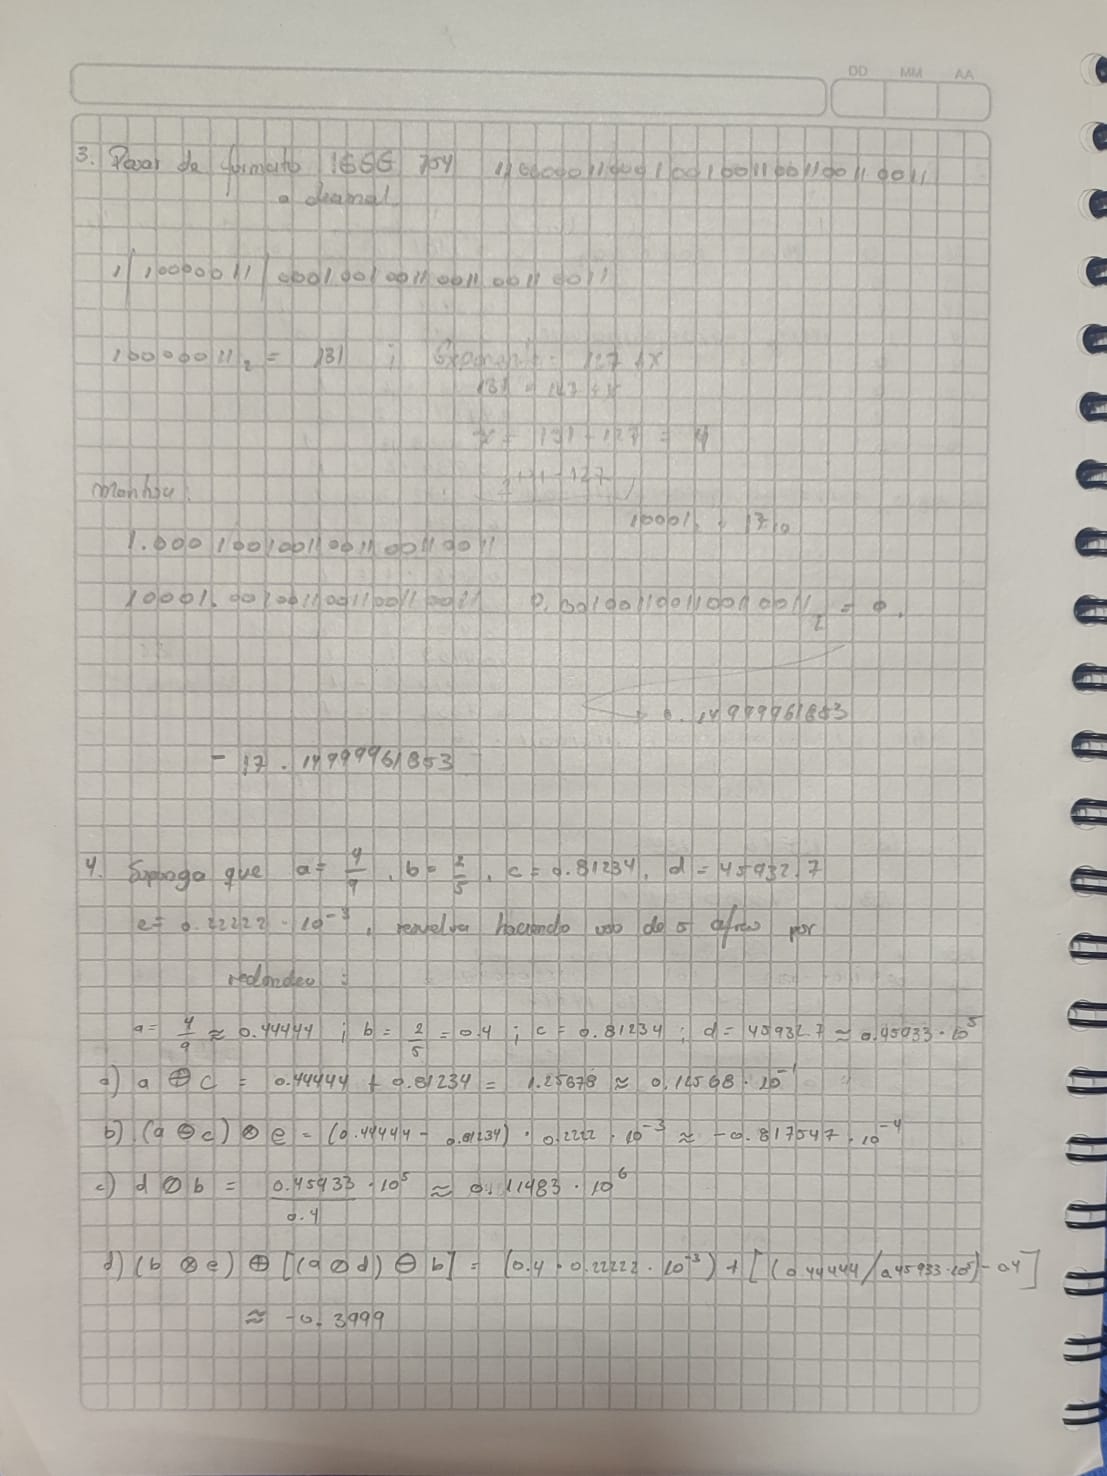 DD MM AA
3. Pasar de formato IEEE 754 11000001100010010011001100110011
a decimal.
1/10000011/00010010011001100110011
10000011₂ = 131 ; Exponente = 127 + x
131 = 127 + x
x = 131 - 127 = 4
2¹³¹⁻¹²⁷
Mantisa:
10001₂ = 17₁₀
1.00010010011001100110011
10001.0010011001100110011 0.0010011001100110011₂ = 0.
0.14999961853
- 17.14999961853
4. Suponga que a = 4/9, b = 2/5, c = 0.81234, d = 45932.7
e = 0.22222 · 10⁻³, resuelva haciendo uso de 5 cifras por
redondeo :
a = 4/9 ≈ 0.44444 ; b = 2/5 = 0.4 ; c = 0.81234 ; d = 45932.7 ≈ 0.45933 · 10⁵
a) a ⊕ c = 0.44444 + 0.81234 = 1.25678 ≈ 0.12568 · 10⁻¹
b) (a ⊖ c) ⊗ e = (0.44444 - 0.81234) · 0.2222 · 10⁻³ ≈ -0.817547 · 10⁻⁴
c) d ⊘ b = 0.45933 · 10⁵ / 0.4 ≈ 0.11483 · 10⁶
d) (b ⊗ e) ⊕ [(a ⊘ d) ⊖ b] = (0.4 · 0.22222 · 10⁻³) + [(0.44444/0.45933 · 10⁵) - 0.4]
≈ -0.3999